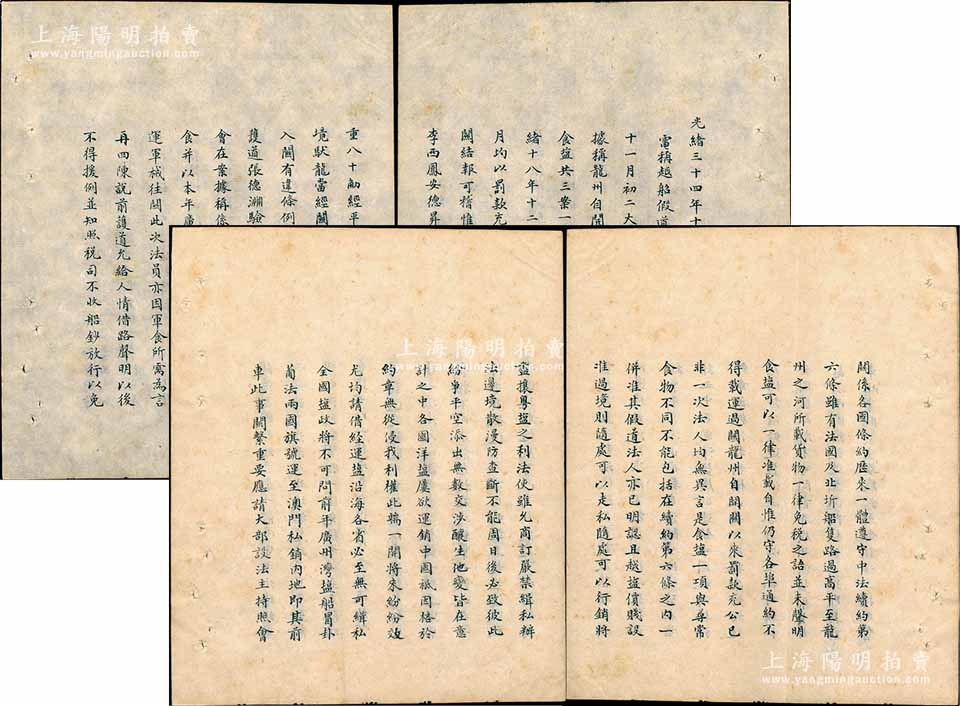 光緒三十四年十
電稱越船假道
十一月初二大
據稱龍州自開
食鹽共三案一
緒十八年十二
月均以罰款充
關結報可稽惟
李西鳳安德昇
重八十觔經平
境馱龍當經關
入關有違條例
護道張德淵驗
會在案據稱係
食并以本年廣
運軍械往關此次法員亦因軍食所需為言
再四陳說前護道允給人情借路聲明以後
不得援例並知照稅司不收船鈔放行以免
關係各國條約歷來一體遵守中法續約第
六條雖有法國及北圻船隻路過高平至龍
州之河所載貨物一律免稅之語並未聲明
食鹽可以一律准載自惟仍守各埠通約不
得載運過關龍州自開關以來罰款充公已
非一次法人均無異言是食鹽一項與尋常
食物不同不能包括在續約第六條之內一
併准其假道法人亦已明認且越鹽價賤設
准過境則隨處可以走私隨處可以行銷將
盡攘粵鹽之利法使雖允商訂嚴禁緝私辦
法邊境散漫防查斷不能周日後必致彼此
紛爭平空添出無數交涉釀生他變皆在意
計之中各國洋鹽屢欲運銷中國祗因格於
約章無從侵我利權此端一開將來紛紛效
尤均請借經運鹽沿海各省必至無可緝私
全國鹽政將不可問前年廣州灣鹽船冒卦
葡法兩國旗號運至澳門私銷內地即其前
車此事關繫重要應請大部設法主持照會
上海陽明拍賣
www.yangmingauction.com
上海陽明拍賣
www.yangmingauction.com
上海陽明拍賣
www.yangmingauction.com
上海陽明拍賣
www.yangmingauction.com